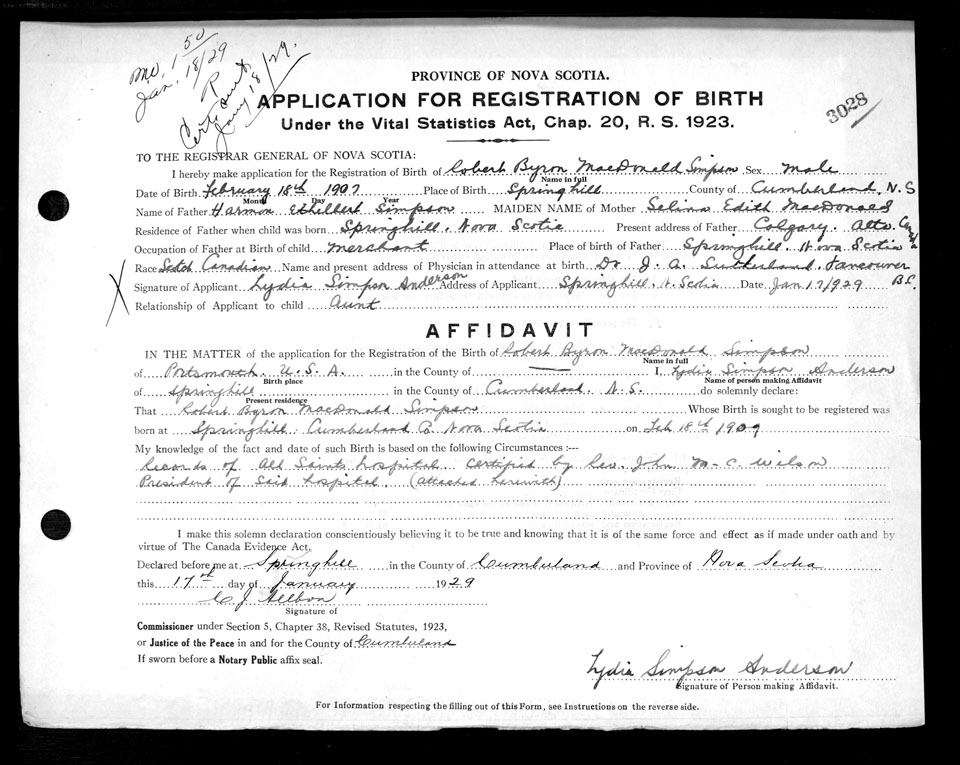 mo. 1 50
Jan. 18/29
R
Certf sent
Jany 18/29.
PROVINCE OF NOVA SCOTIA.
APPLICATION FOR REGISTRATION OF BIRTH
3028
Under the Vital Statistics Act, Chap. 20, R. S. 1923.
TO THE REGISTRAR GENERAL OF NOVA SCOTIA:
I hereby make application for the Registration of Birth of Robert Byron MacDonald Simpson Sex Male
Name in full
Date of Birth February 18th 1907 Place of Birth Springhill County of Cumberland, N.S
Month Day Year
Name of Father Harmon Ethelbert Simpson MAIDEN NAME of Mother Selina Edith MacDonald
Residence of Father when child was born Springhill. Nova Scotia Present address of Father Calgary. Alta.
Occupation of Father at Birth of child merchant Place of birth of Father Springhill. Nova Scotia
Race Scotch Canadian Name and present address of Physician in attendance at birth Dr J. A. Sutherland. Vancouver B.C.
X Signature of Applicant Lydia Simpson Anderson Address of Applicant Springhill. N. Scotia Date Jan 17/929
Relationship of Applicant to child Aunt
AFFIDAVIT
IN THE MATTER of the application for the Registration of the Birth of Robert Byron MacDonald Simpson
Name in full
of Portsmouth. U.S.A. in the County of — I, Lydia Simpson Anderson
Birth place Name of person making Affidavit
of Springhill in the County of Cumberland. N.S. do solemnly declare:
Present residence
That Robert Byron MacDonald Simpson Whose Birth is sought to be registered was
born at Springhill. Cumberland Co. Nova Scotia on Feb 18th 1909
My knowledge of the fact and date of such Birth is based on the following Circumstances :—
Records of All Saints hospital certified by Rev. John M-C. Wilson
President of Said hospital. (attached herewith)
I make this solemn declaration conscientiously believing it to be true and knowing that it is of the same force and effect as if made under oath and by
virtue of The Canada Evidence Act.
Declared before me at Springhill in the County of Cumberland and Province of Nova Scotia
this 17th day of January 1929
C J Allbon
Signature of
Commissioner under Section 5, Chapter 38, Revised Statutes, 1923,
or Justice of the Peace in and for the County of Cumberland
If sworn before a Notary Public affix seal.
Lydia Simpson Anderson
Signature of Person making Affidavit.
For Information respecting the filling out of this Form, see Instructions on the reverse side.